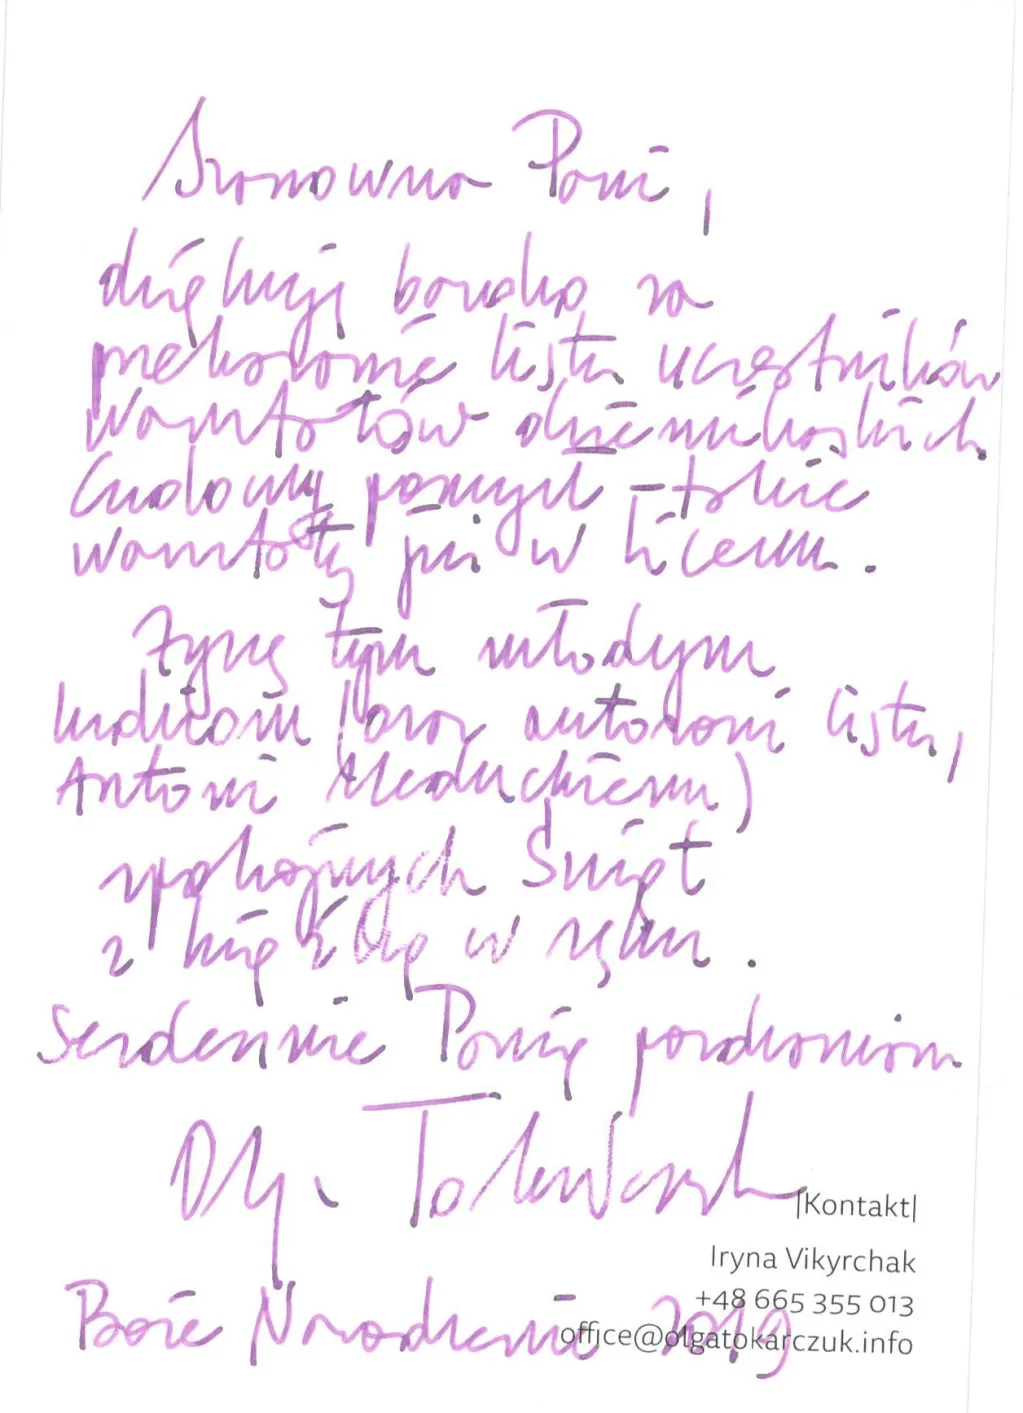 Szanowna Pani,
dziękuję bardzo za
przekazanie listu uczestników
warsztatów dziennikarskich.
Cudowny pomysł – takie
warsztaty już w liceum.
Życzę tym młodym
ludziom (oraz autorowi listu,
Antoni
spokojnych Świąt
z książką w ręku.
Serdecznie Panią pozdrawiam
Olga Tokarczuk
|Kontakt|
Iryna Vikyrchak
+48 665 355 013
office@olgatokarczuk.info
Boże Narodzenie 2019